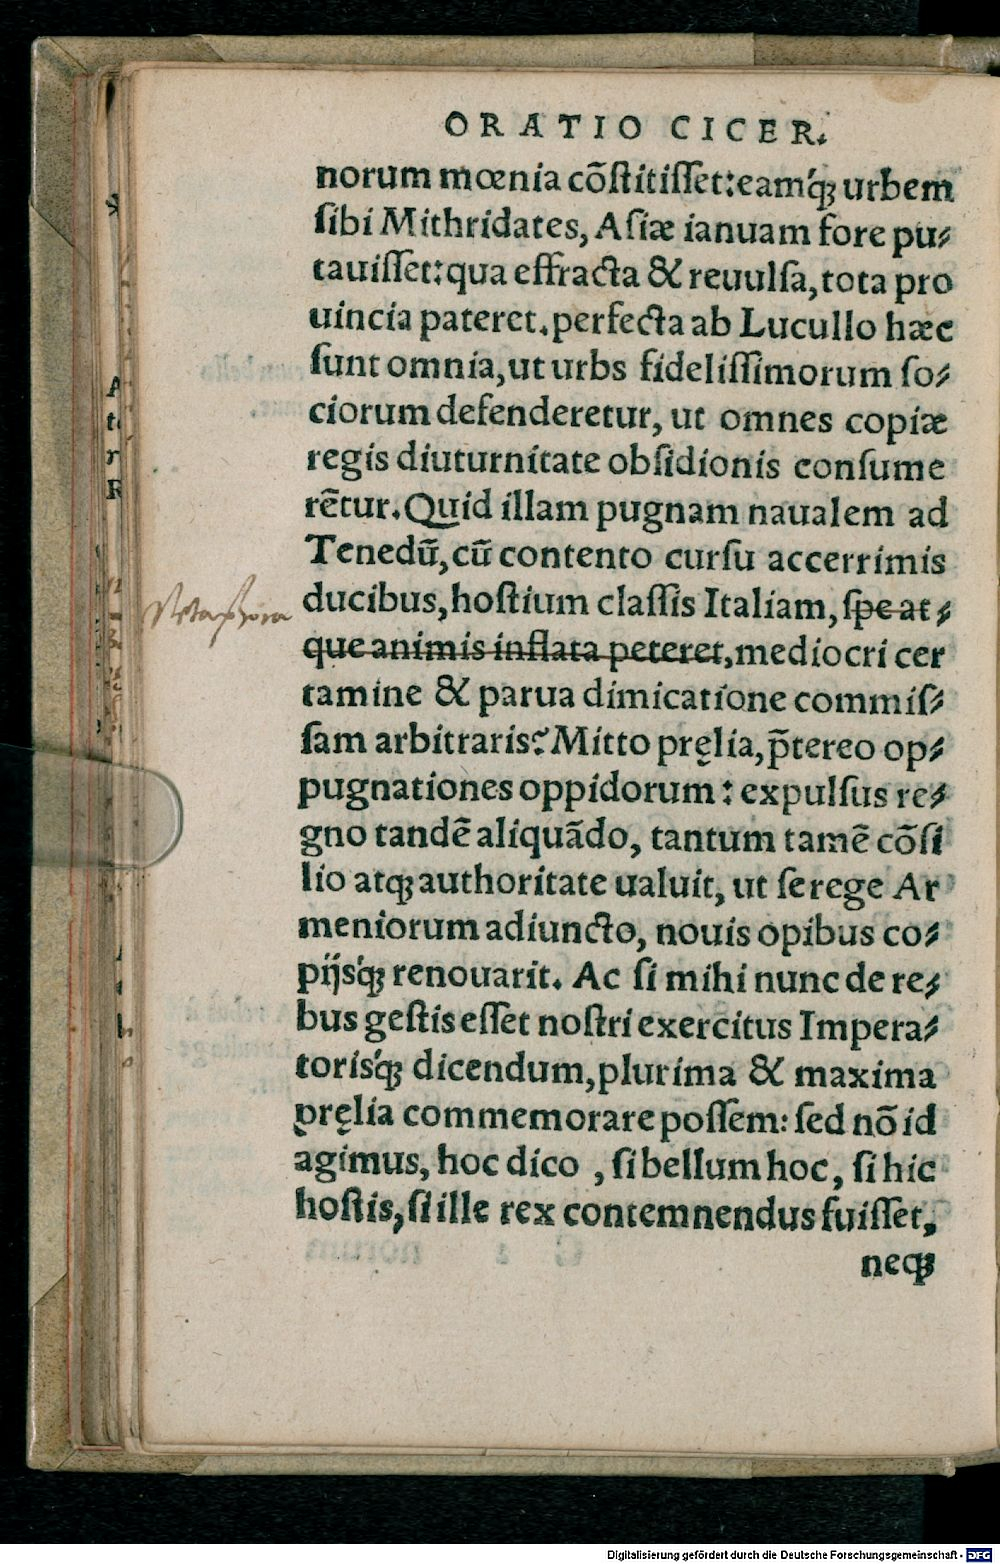 ORATIO CICER.
norum mœnia cõſtitiſſet: eamq́ꝫ urbem
ſibi Mithridates, Aſiæ ianuam fore pu⸗
tauiſſet: qua effracta & reuulſa, tota pro
uincia pateret. perfecta ab Lucullo hæc
ſunt omnia, ut urbs fideliſſimorum ſo⸗
ciorum defenderetur, ut omnes copiæ
regis diuturnitate obſidionis conſume
rẽtur. Quid illam pugnam naualem ad
Tenedũ, cũ contento curſu accerrimis
Metaphora
ducibus, hoſtium claſſis Italiam, ſpe at⸗
que animis inflata peteret, mediocri cer
tamine & parua dimicatione commiſ⸗
ſam arbitraris? Mitto pręlia, p̃tereo op⸗
pugnationes oppidorum: expulſus re⸗
gno tandẽ aliquãdo, tantum tamẽ cõſi
lio atqꝫ authoritate ualuit, ut ſe rege Ar
meniorum adiuncto, nouis opibus co⸗
pijsq́ꝫ renouarit. Ac ſi mihi nunc de re⸗
bus geſtis eſſet noſtri exercitus Impera⸗
torisq́ꝫ dicendum, plurima & maxima
pręlia commemorare poſſem: ſed nõ id
agimus, hoc dico , ſi bellum hoc, ſi hic
hoſtis, ſi ille rex contemnendus fuiſſet,
neqꝫ
Digitalisierung gefördert durch die Deutsche Forschungsgemeinschaft - DFG